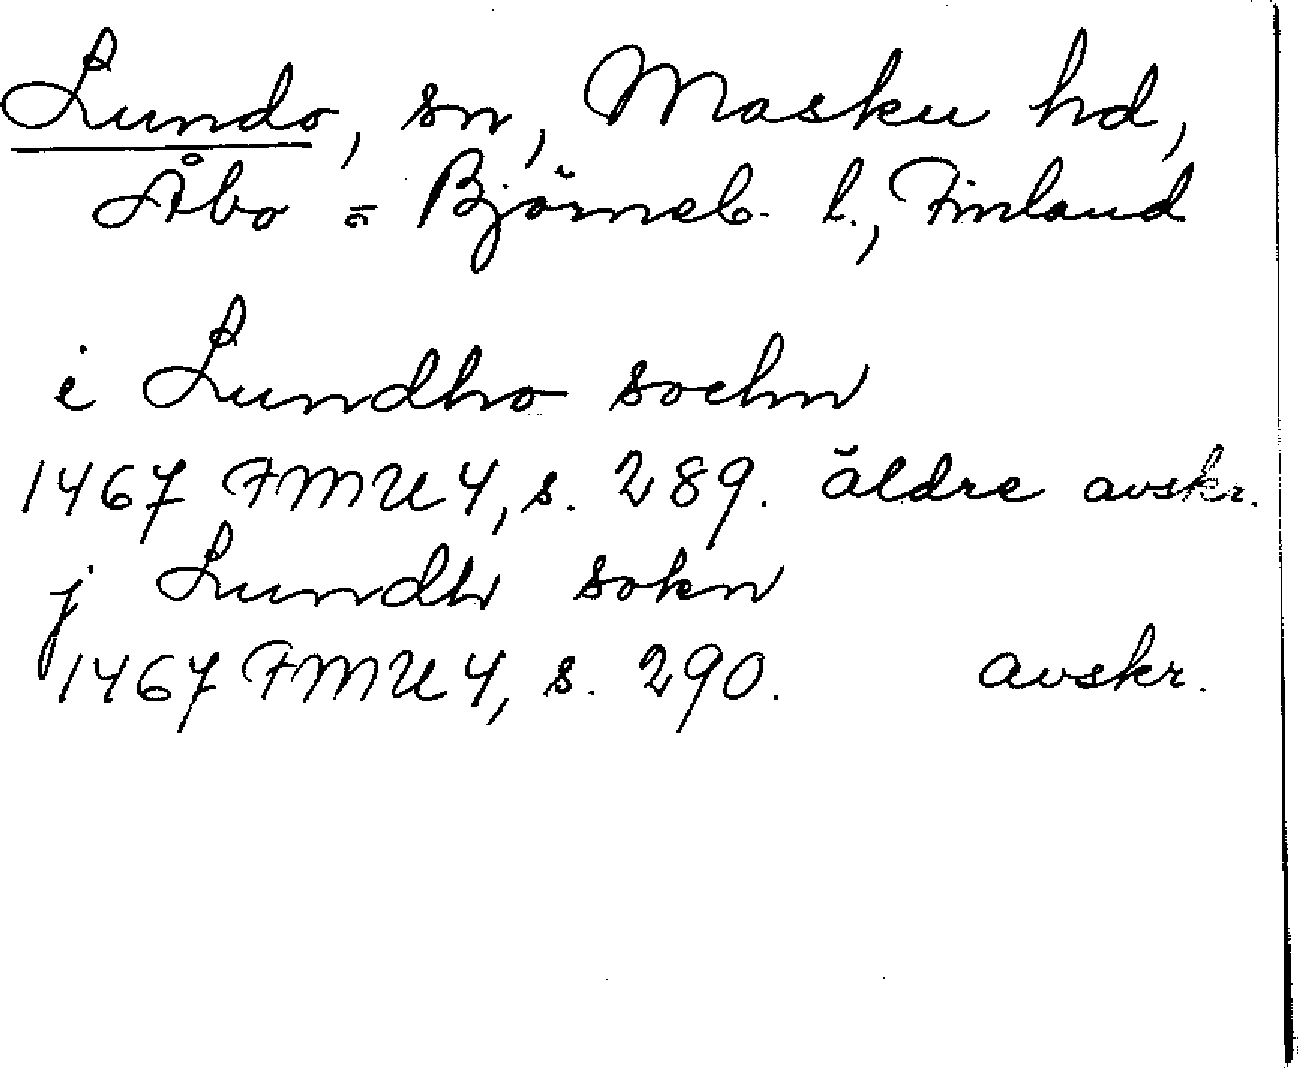 Lundo, sn, Masku hd,
Åbo = Björneb. l., Finland
i Lundho sochn
1467 FMU 4, s. 289. äldre avskr.
j Lundh sokn
1467 FMU 4, s. 290. avskr.